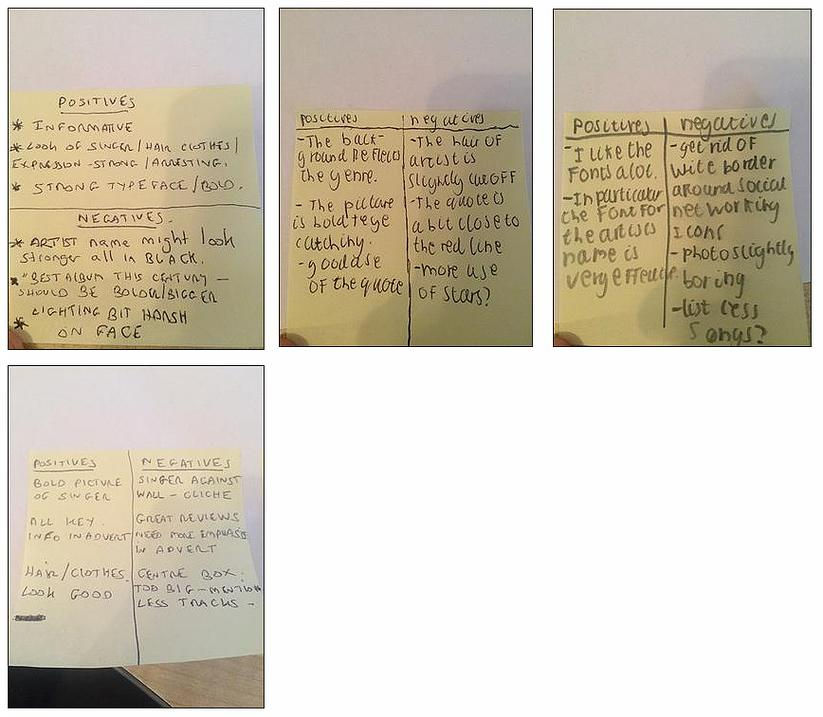 POSITIVES
* INFORMATIVE
* LOOK OF SINGER/HAIR CLOTHES/
EXPRESSION-STRONG/ARRESTING.
* STRONG TYPEFACE/BOLD.
NEGATIVES.
* ARTIST name might look
stronger all in BLACK.
* "BEST ALBUM THIS CENTURY-
SHOULD BE BOLDER/BIGGER
* LIGHTING BIT HARSH
ON FACE
positives
-The back-
ground reflects
the genre.
- The picture
is bold + eye
catching.
- good use
OF the quote
negatives
-The hair OF
artist is
slightly cut OFF
-The quote is
a bit close to
the red line
-more use
OF stars?
Positives
-I like the
Fonts alot.
-In particular
the Font For
the artists
name is
very effective.
negatives
-get rid OF
wite border
around Social
networking
Icons
-photo slightly
boring
-list less
Songs?
POSITIVES
BOLD PICTURE
OF SINGER
ALL KEY
INFO IN ADVERT
HAIR/CLOTHES
LOOK GOOD
NEGATIVES
SINGER AGAINST
WALL - CLICHE
GREAT REVIEWS
NEED MORE EMPHASIS
IN ADVERT
CENTRE BOX:
TOO BIG - MENTION
LESS TRACKS -